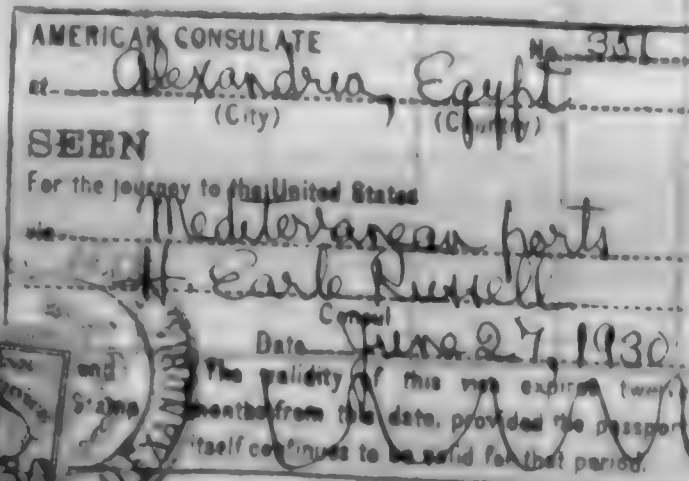 AMERICAN CONSULATE No. 351
at Alexandria, Egypt
(City) (Country)
SEEN
For the journey to the United States
via Mediterranean ports
H Earle Russell
Consul
Date June 27, 1930
and The validity of this visa expires
Stamp months from this date, provided the passport
itself continues to be valid for that period.